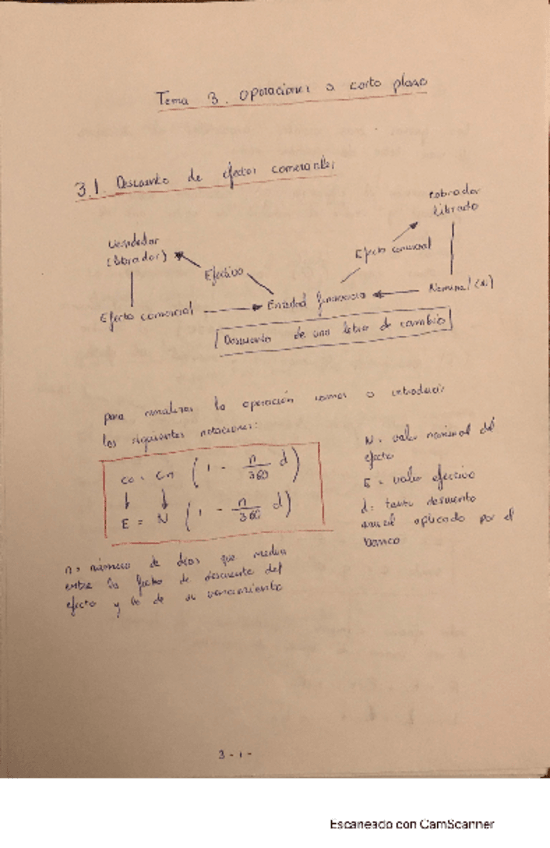 Tema 3. Operaciones a corto plazo
3.1. Descuento de efectos comerciales
Vendedor
(librador)
Cobrador
librado
Efectivo
Efecto comercial
Efecto comercial
Entidad financiera
Nominal (N)
Descuento de una letra de cambio
para analizar la operación vamos a introducir
las siguientes notaciones:
C₀ = Cn (1 - n/360 d)
E = N (1 - n/360 d)
N = valor nominal del
efecto
E = valor efectivo
d = tanto descuento
anual aplicado por el
banco
n = número de días que median
entre la fecha de descuento del
efecto y la de su vencimiento
3-1-
Escaneado con CamScanner